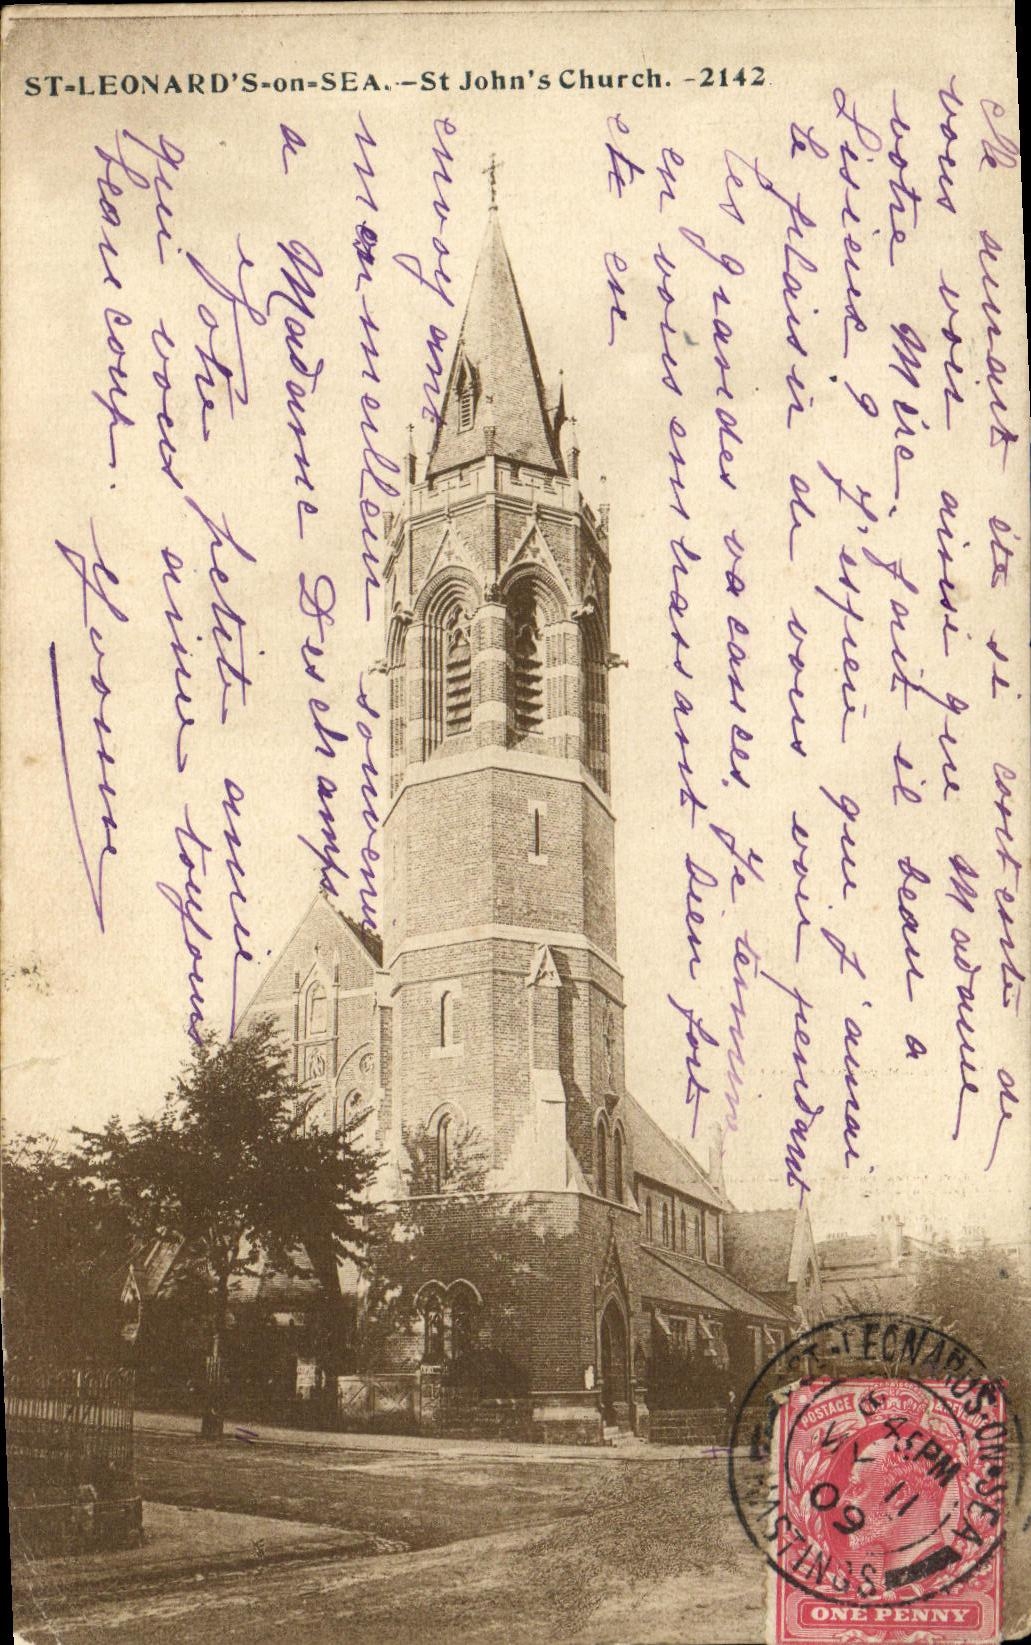 ST-LEONARD'S-on-SEA.—St John's Church. -2142
été si contente de
vous voir ainsi que Madame
votre Mère, fait il beau a
Lisieux ? J'espère que j'aurai
le plaisir de vous voir pendant
les grandes vacances. Je termine
en vous embrassant bien fort
et en
envoyant
meilleur souvenir
a Madame Deschamps
Votre petite amie
qui vous aime toujours
beaucoup.
Yvonne
ST-LEONARDS-ON-SEA
45PM
11
09
ST LEONARDS
POSTAGE
ONE PENNY